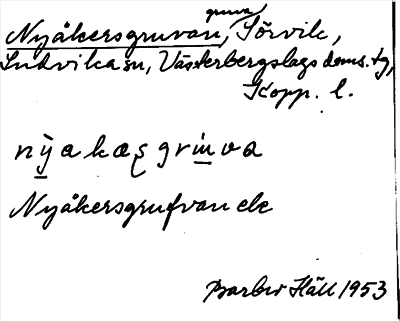 gruva
Nyåkersgruvan, Sörvik,
Ludvika sn, Västerbergslags doms. tg,
Kopp. l.
Nyåkersgrufvan ek
Barbro Häll 1953